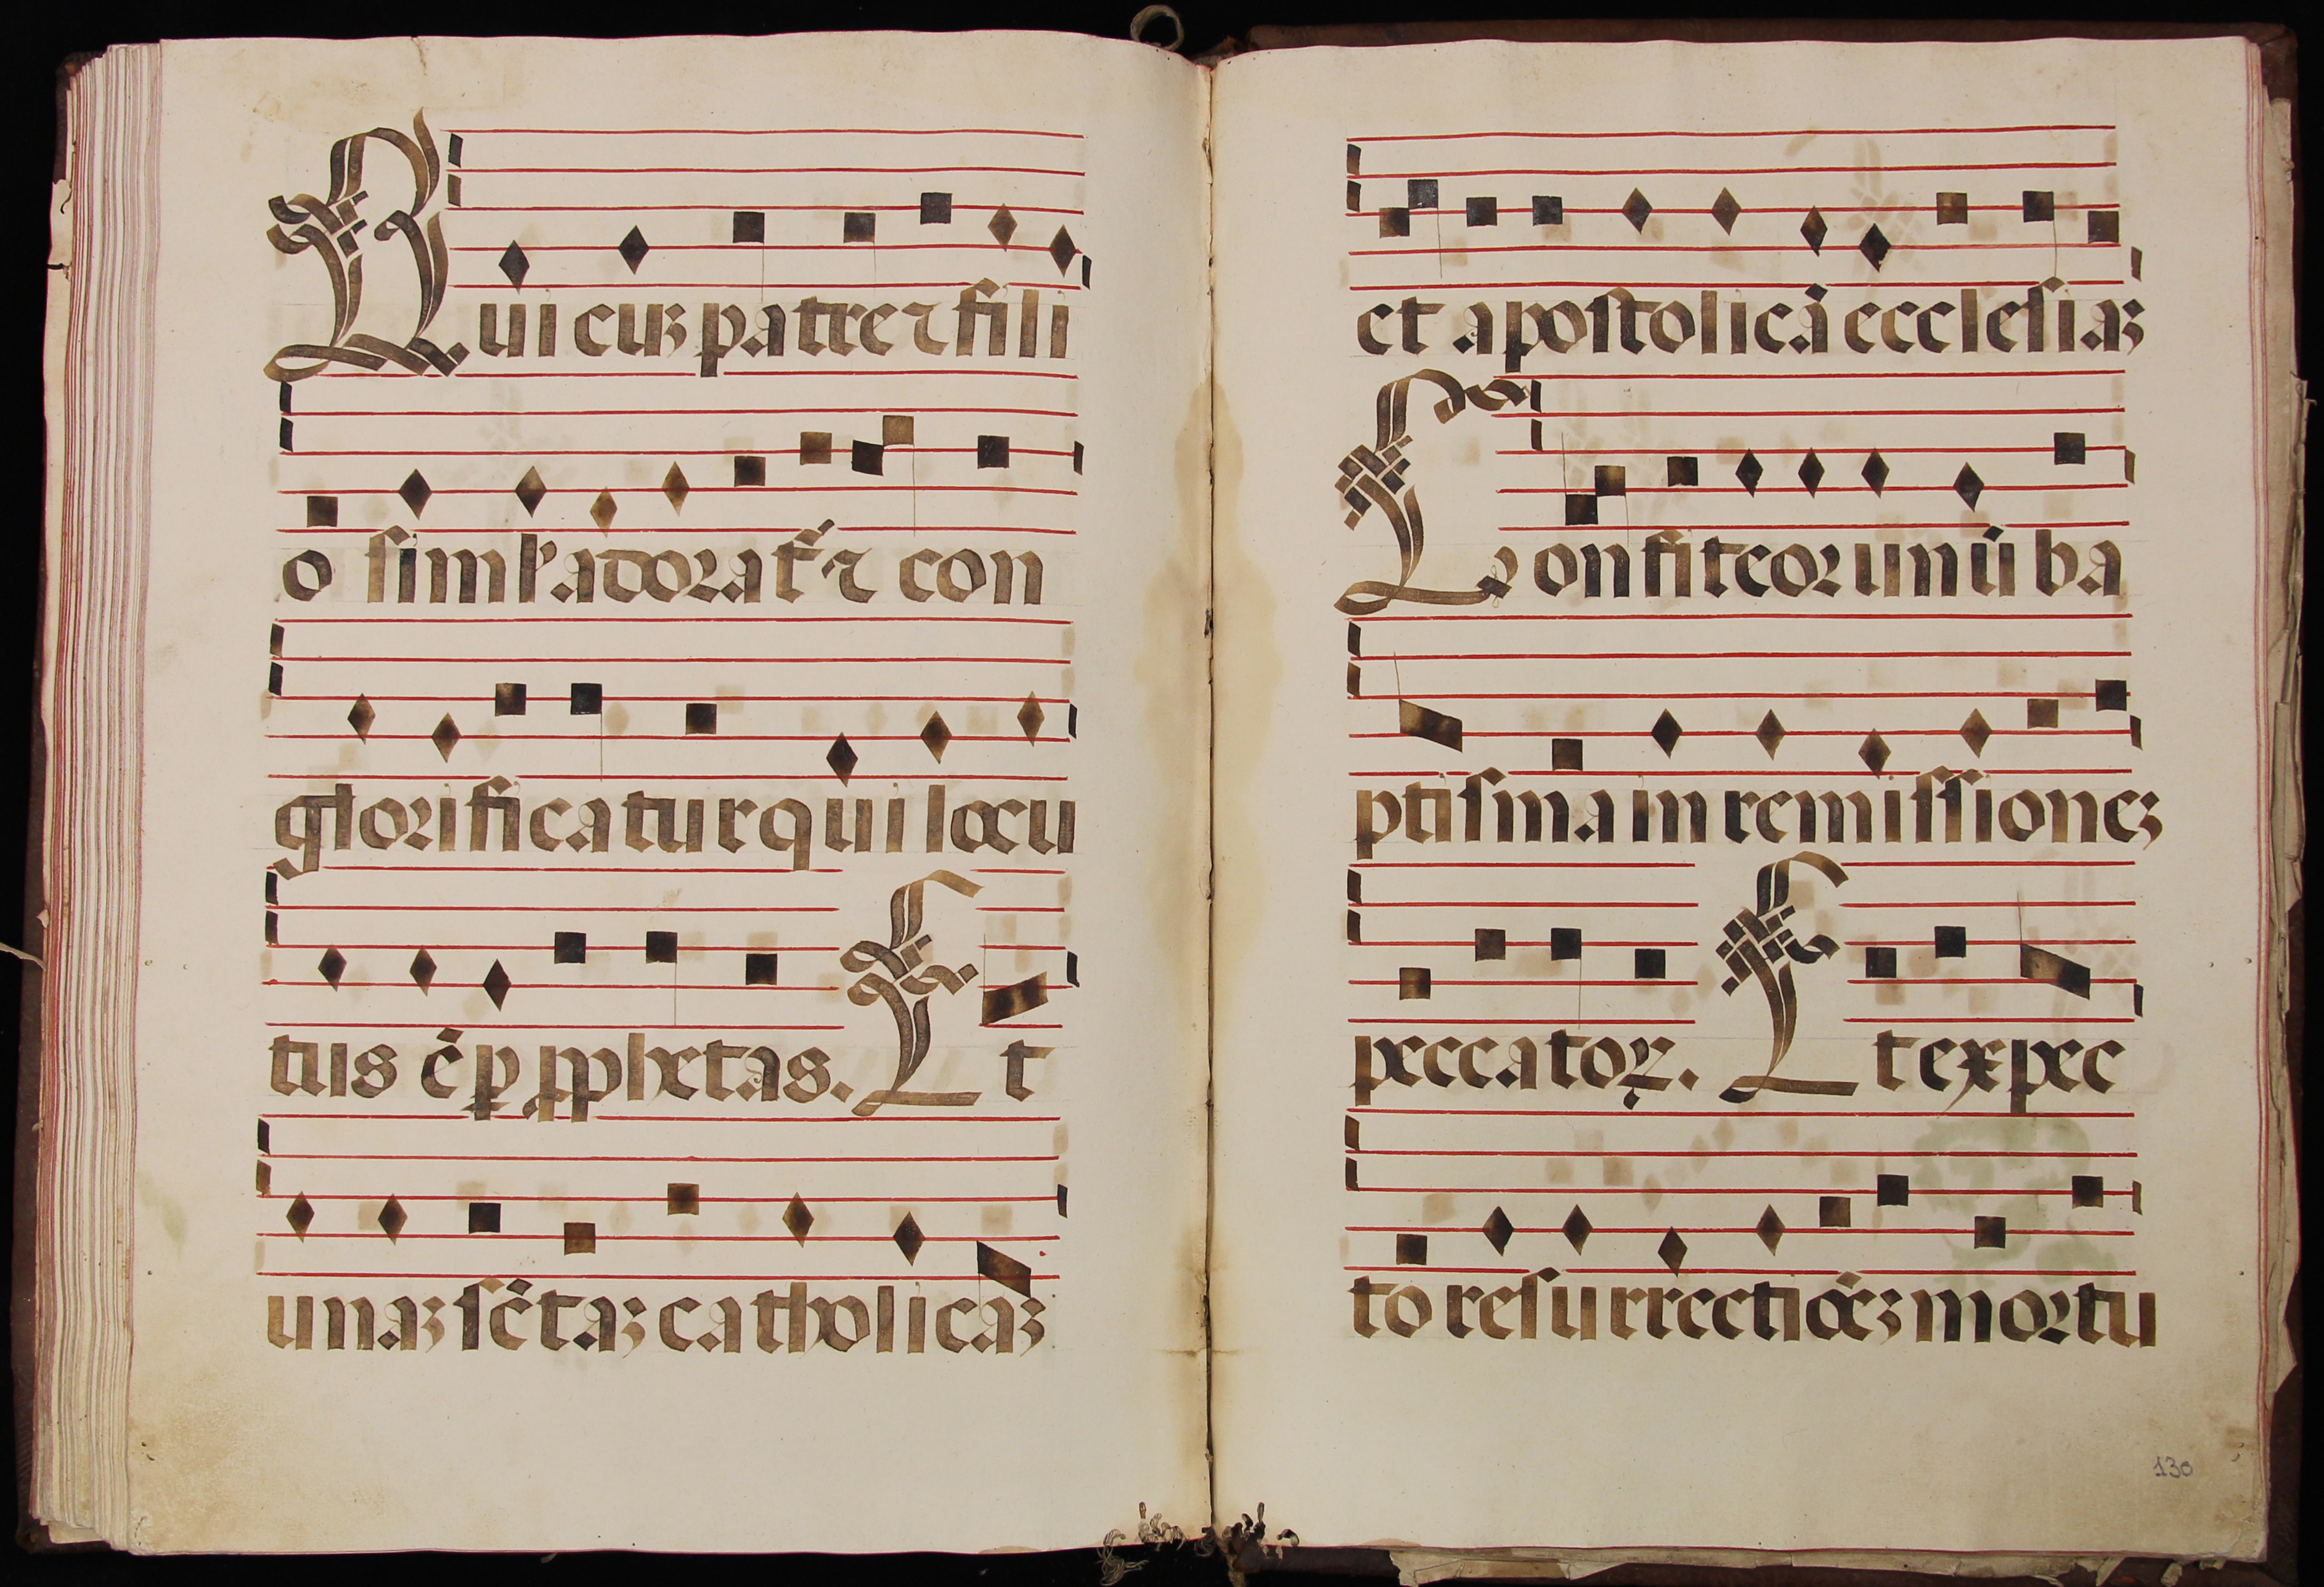 Qui cuꝫ patre ⁊ fili
o siml̕ adorat᷑ ⁊ con
glorificatur qui locu
tus ē ꝑ ꝓphetas. Et
unaꝫ sc̄taꝫ catholicaꝫ
et apostolicā ecclesiaꝫ
Confiteor unū ba
ptisma in remissioneꝫ
peccatoꝝ. Et expec
to resurrectiōeꝫ mortu
130